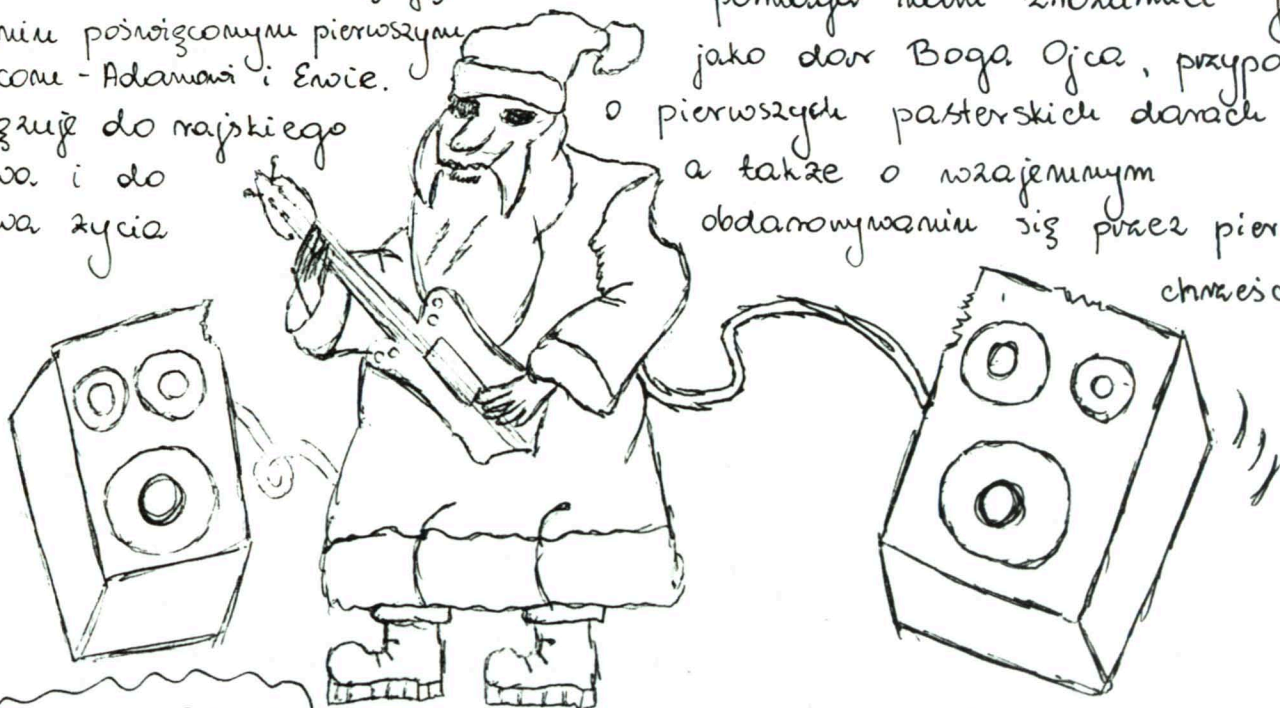 poświęconym pierwszym
- Adamowi i Ewie.
do rajskiego
i do
życia
jako dar Boga Ojca,
o pierwszych pasterskich darach
a także o wzajemnym
obdarowywaniu się przez